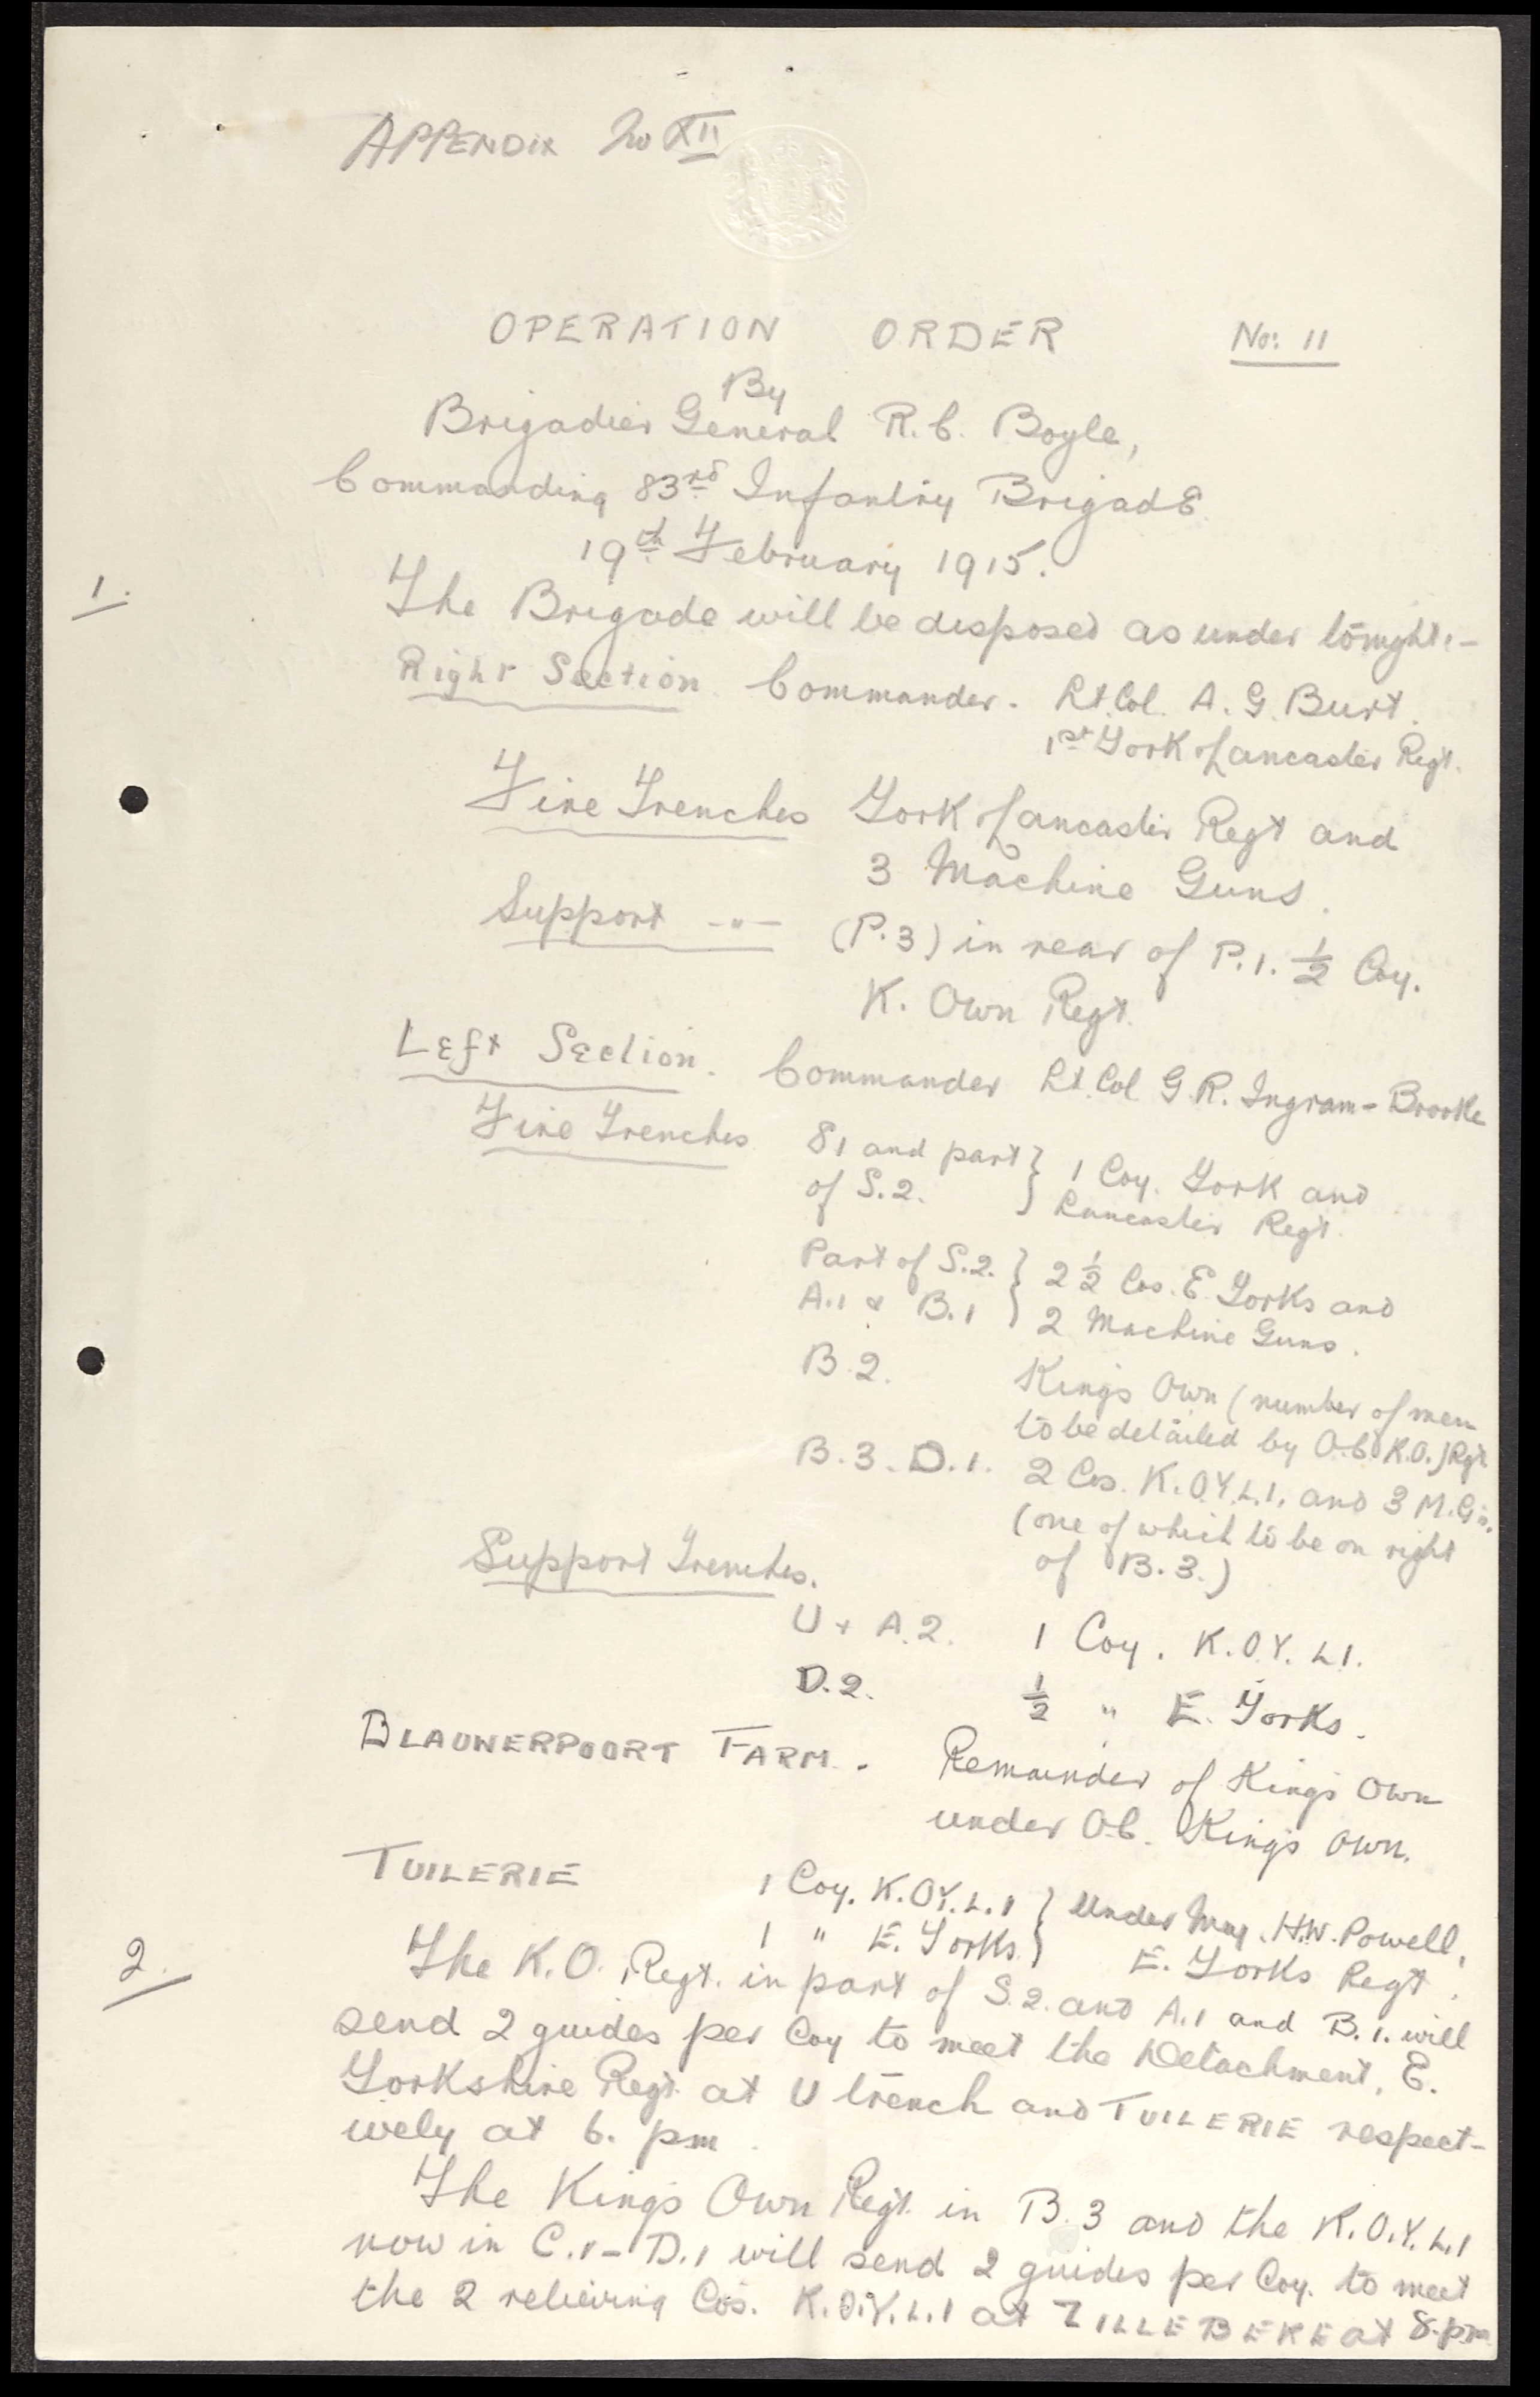 APPENDIX No XII
OPERATION ORDER No: 11
By
Brigadier General R.C. Boyle,
Commanding 83rd Infantry Brigade.
19th February 1915.
1. The Brigade will be disposed as under tonight:-
Right Section. Commander. Lt. Col. A. G. Burt.
1st York & Lancaster Regt.
Fire Trenches York & Lancaster Regt and
3 Machine Guns.
Support -"- (P.3) in rear of P.1. ½ Coy.
K. Own Regt.
Left Section. Commander Lt. Col G.R. Ingram-Brooke
Fire Trenches S1 and part } 1 Coy. York and
of S.2. } Lancaster Regt.
Part of S.2. } 2½ Cos. E. Yorks and
A.1 & B.1 } 2 Machine Guns.
B.2. Kings Own (number of men
to be detailed by O.C. K.O.) Rgt
B.3. D.1. 2 Cos. K.O.Y.L.I. and 3 M.Gs.
(one of which to be on right
of B.3.)
Support Trenches.
U + A.2. 1 Coy. K.O.Y.L.I.
D.2. ½ " E. Yorks.
BLAUWERPOORT FARM. Remainder of King's Own
under O.C. King's Own.
TUILERIE 1 Coy. K.O.Y.L.I } Under Maj. H.W. Powell,
1 " E. Yorks. } E. Yorks Regt.
2. The K.O. Regt. in part of S.2. and A.1 and B.1. will
send 2 guides per Coy to meet the Detachment, E.
Yorkshire Regt. at U trench and TUILERIE respect-
ively at 6. pm.
The King's Own Regt. in B.3 and the K.O.Y.L.I
now in C.1 - D.1 will send 2 guides per Coy. to meet
the 2 relieving Cos. K.O.Y.L.I at ZILLEBEKE at 8.pm